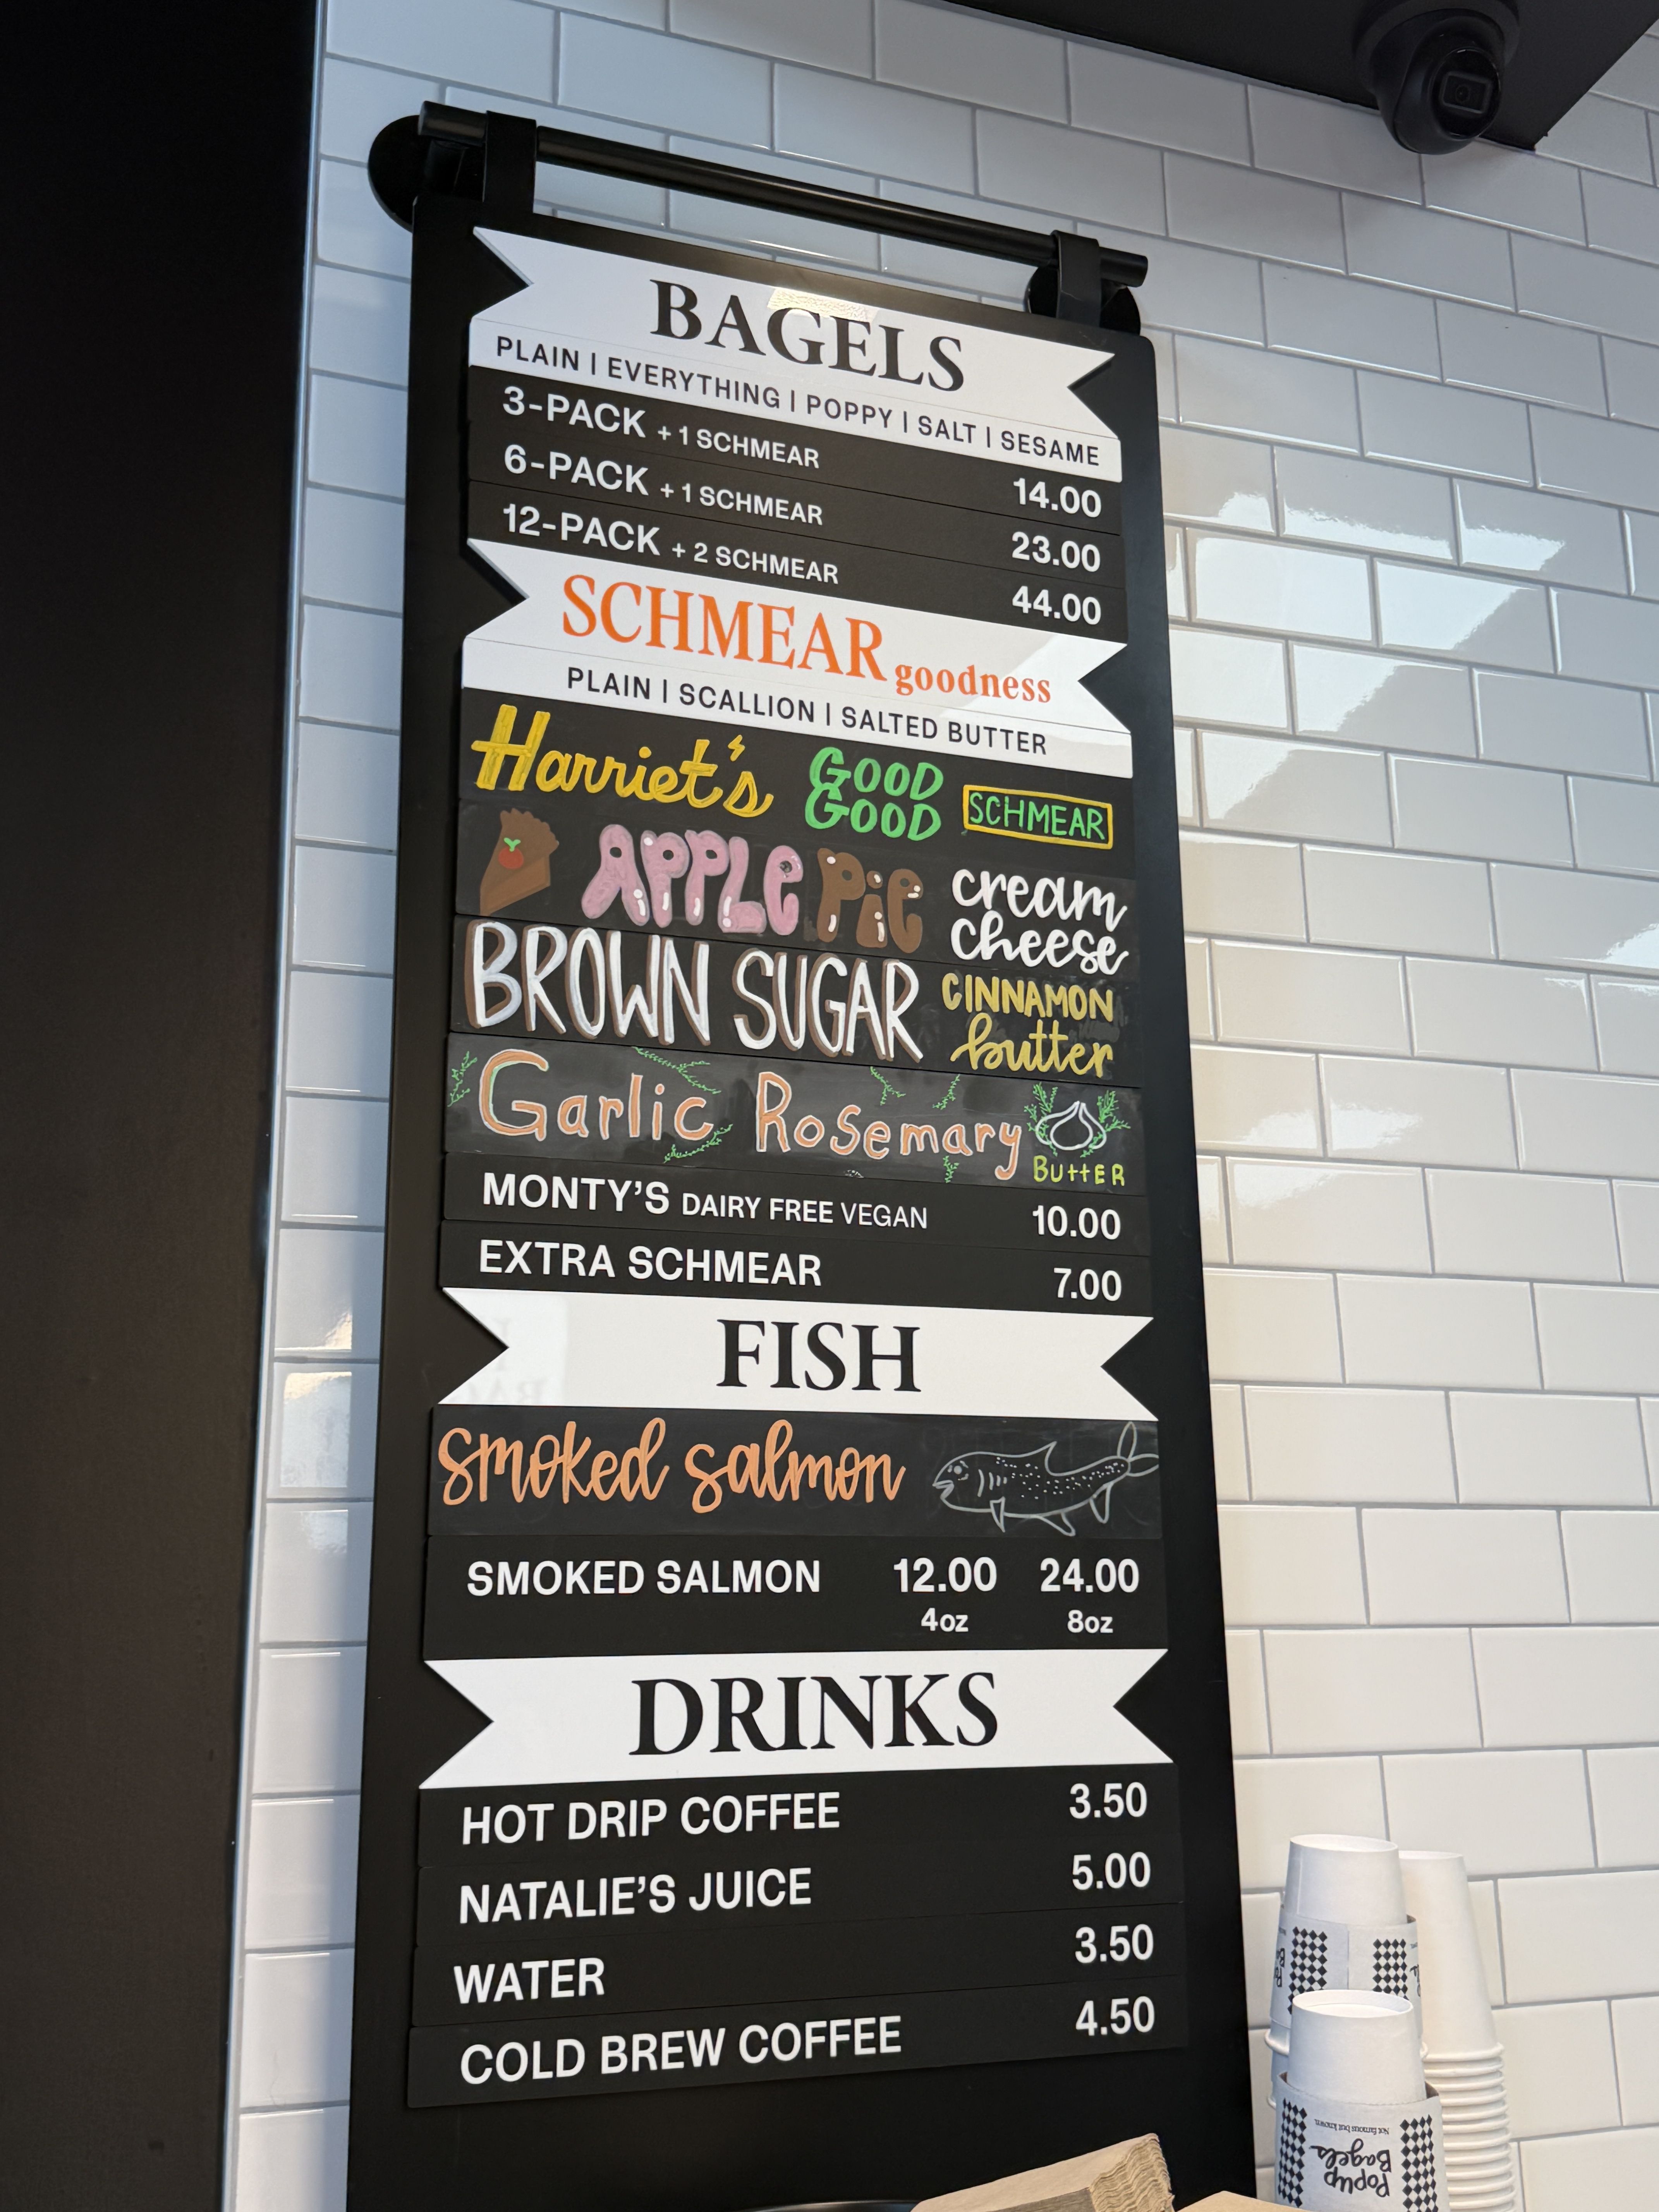 BAGELS
PLAIN | EVERYTHING | POPPY | SALT | SESAME
3-PACK + 1 SCHMEAR 14.00
6-PACK + 1 SCHMEAR 23.00
12-PACK + 2 SCHMEAR 44.00
SCHMEAR goodness
PLAIN | SCALLION | SALTED BUTTER
Harriet's GOOD GOOD SCHMEAR
APPLE PiE cream cheese
BROWN SUGAR CINNAMON butter
Garlic Rosemary ButtER
MONTY'S DAIRY FREE VEGAN 10.00
EXTRA SCHMEAR 7.00
FISH
smoked salmon
SMOKED SALMON 12.00 24.00
4oz 8oz
DRINKS
HOT DRIP COFFEE 3.50
NATALIE'S JUICE 5.00
WATER 3.50
COLD BREW COFFEE 4.50
PopUp
Bagels
Not famous but known.